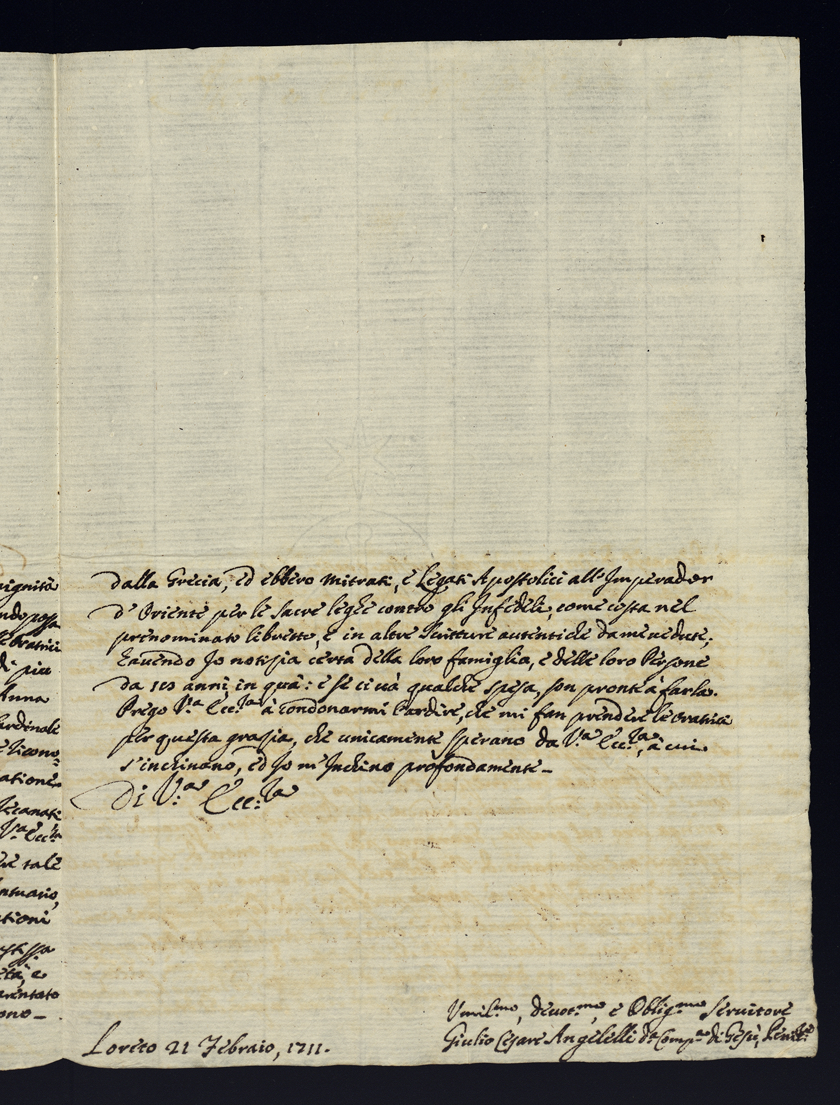 dignità
ndosssa
e oratrici
di piu
Anna
ardinale
e licono=
atione
Recanati
V.ª Ecc.ª
he tale
ntuario,
ationi
stessa
età, e
arentato
ono_
dalla Grecia, ed ebbero mitrati, è Legati Apostolici all'Imperador
d'Oriente per le sacre leghe contro gli Infedeli, come costa nel
prenominato libretto, è in altre scritture autentiche da me vedute;
havendo Io notizia certa della loro famiglia, è delle loro Persone
da 110 anni, in quà: è se ci và qualche spesa, son pronte à farla.
Prego V.ª Ecc.za à condonarmi l'ardire, che mi fan prendere le oratrici
per questa grazia, che unicamente sperano da V.ª Ecc.za, à cui
s'inchinano, ed Io m'Inchino profondamente_
Di V.ª Ecc.za
Umil.mo, devot.mo, è Oblig.mo Servitore
Giulio Cesare Angelelli d.a Comp.a di Gesù, Penit.re
Loreto 21 Febraio, 1711.